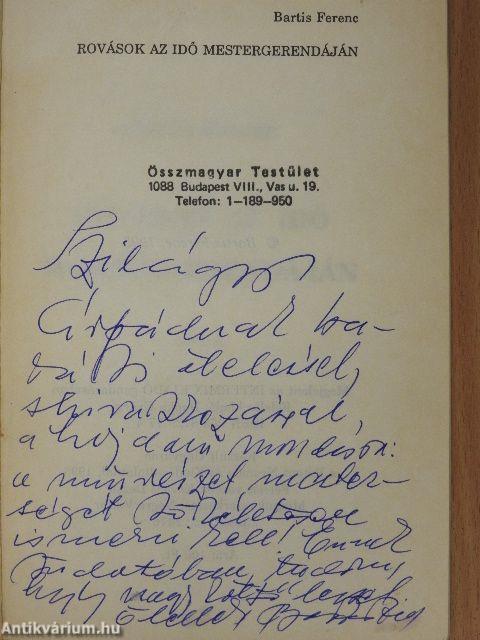 Bartis Ferenc
ROVÁSOK AZ IDŐ MESTERGERENDÁJÁN
Összmagyar Testület
1088 Budapest VIII., Vas u. 19.
Telefon: 1-189-950
Szilágyi
Árpádnak ba-
ráti öleléssel,
a hajdani
a művészet mester-
ségét
ismerni kell! Ennek
tudatában tudom,
hogy nagy
Ölellek
Antikvárium.hu